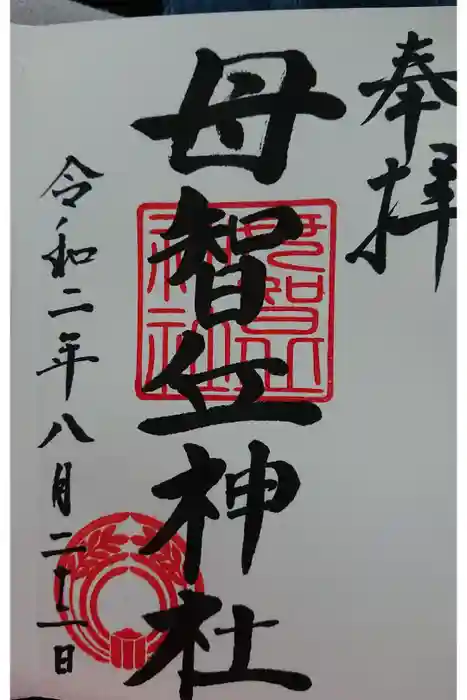 奉拝
母智丘神社
令和二年八月二十二日
母智丘
神社